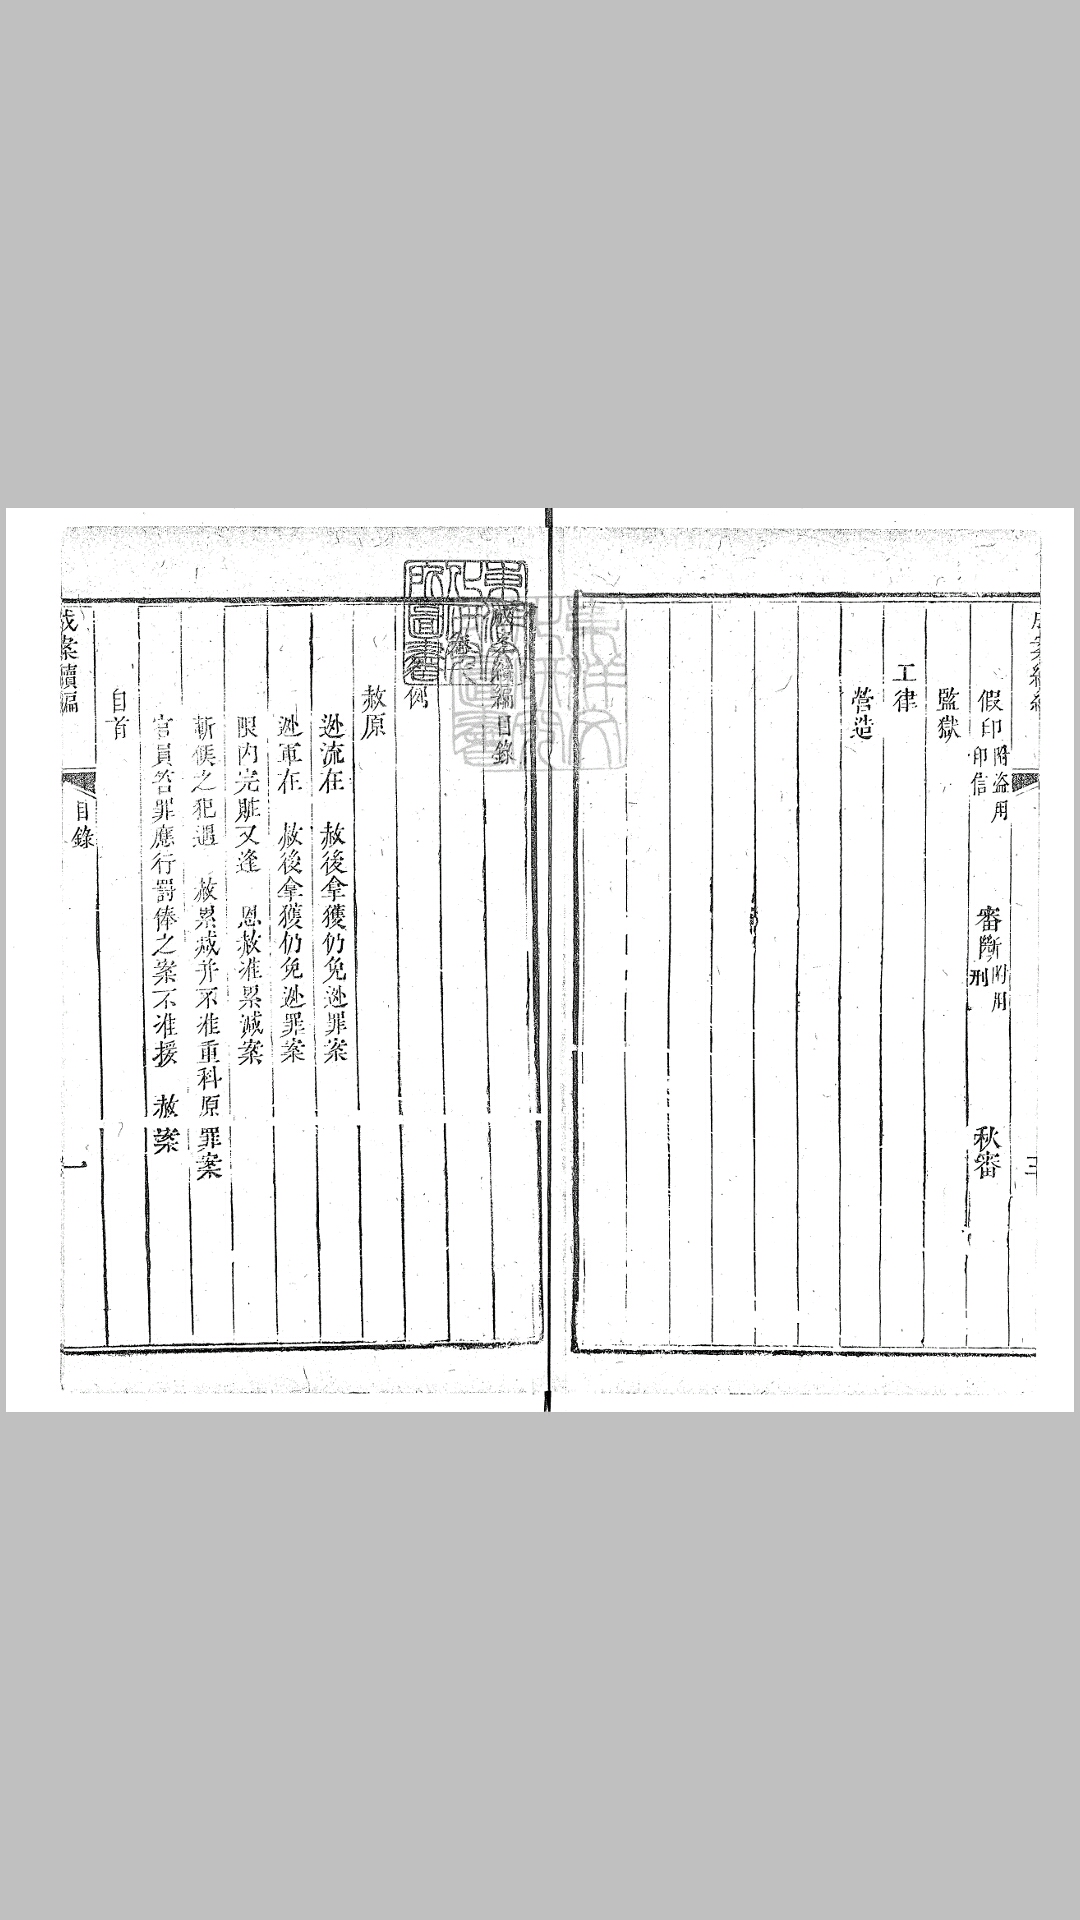 假印 附盜用印信 審斷 附用刑 秋審
監獄
工律
營造
成案續編目錄
例
赦原
逃流在 赦後拿獲仍免逃罪案
逃軍在 赦後拿獲仍免逃罪案
限内完賍又逢 恩赦准累減案
斬候之犯遇 赦累減并不准重科原罪案
官員笞罪應行罸俸之案不准援 赦案
自首
成案續編 目錄 一